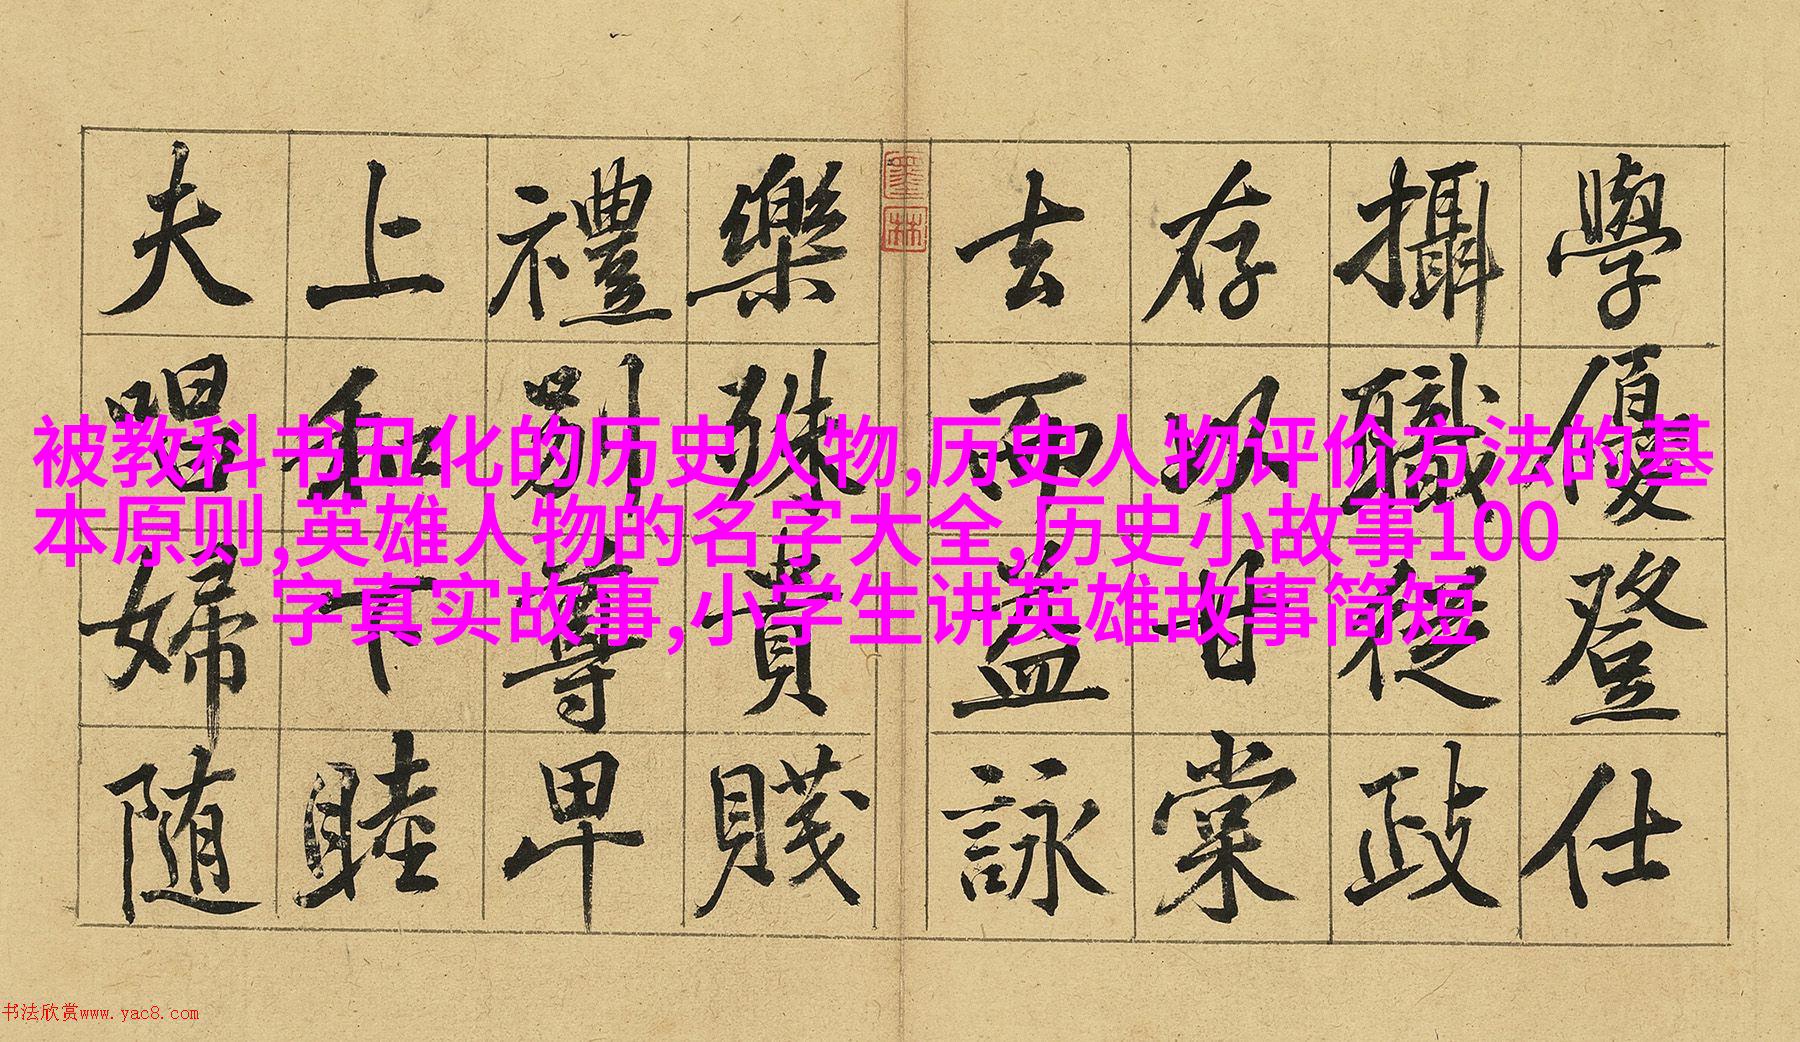 學優登仕
攝職從政
存以甘棠
去而益詠
樂殊貴賤
禮別尊卑
上和下睦
夫唱婦随
墨林
被教科书丑化的历史人物,历史人物评价方法的基
本原则,英雄人物的名字大全,历史小故事100
字真实故事,小学生讲英雄故事简短
书法欣赏www.yac8.com